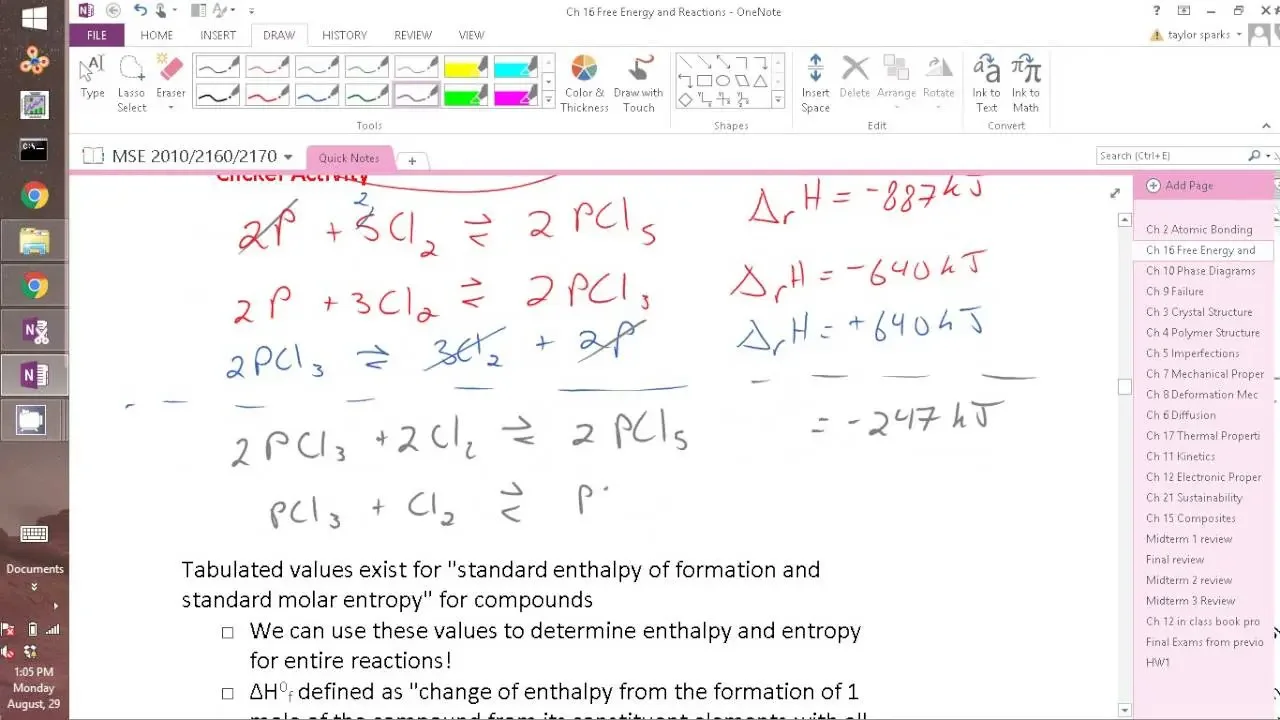 Ch 16 Free Energy and Reactions - OneNote
FILE HOME INSERT DRAW HISTORY REVIEW VIEW
taylor sparks
Type Lasso Select Eraser
Color & Thickness Draw with Touch
Insert Space Delete Arrange Rotate
Ink to Text Ink to Math
Tools Shapes Edit Convert
MSE 2010/2160/2170 Quick Notes
Search (Ctrl+E)
Clicker Activity
2
2P + 3Cl₂ ⇌ 2 PCl₅ ΔᵣH = -887 kJ
2P + 3Cl₂ ⇌ 2PCl₃ ΔᵣH = -640 kJ
2PCl₃ ⇌ 3Cl₂ + 2P ΔᵣH = +640 kJ
2PCl₃ + 2Cl₂ ⇌ 2 PCl₅ = -247 kJ
PCl₃ + Cl₂ ⇌ P
Tabulated values exist for "standard enthalpy of formation and
standard molar entropy" for compounds
We can use these values to determine enthalpy and entropy
for entire reactions!
ΔH⁰f defined as "change of enthalpy from the formation of 1
mole of the compound from its constituent elements with all
Add Page
Ch 2 Atomic Bonding
Ch 16 Free Energy and
Ch 10 Phase Diagrams
Ch 9 Failure
Ch 3 Crystal Structure
Ch 4 Polymer Structure
Ch 5 Imperfections
Ch 7 Mechanical Proper
Ch 8 Deformation Mec
Ch 6 Diffusion
Ch 17 Thermal Properti
Ch 11 Kinetics
Ch 12 Electronic Proper
Ch 21 Sustainability
Ch 15 Composites
Midterm 1 review
Final review
Midterm 2 review
Midterm 3 Review
Ch 12 in class book pro
Final Exams from previo
HW1
Documents
1:05 PM
Monday
August, 29